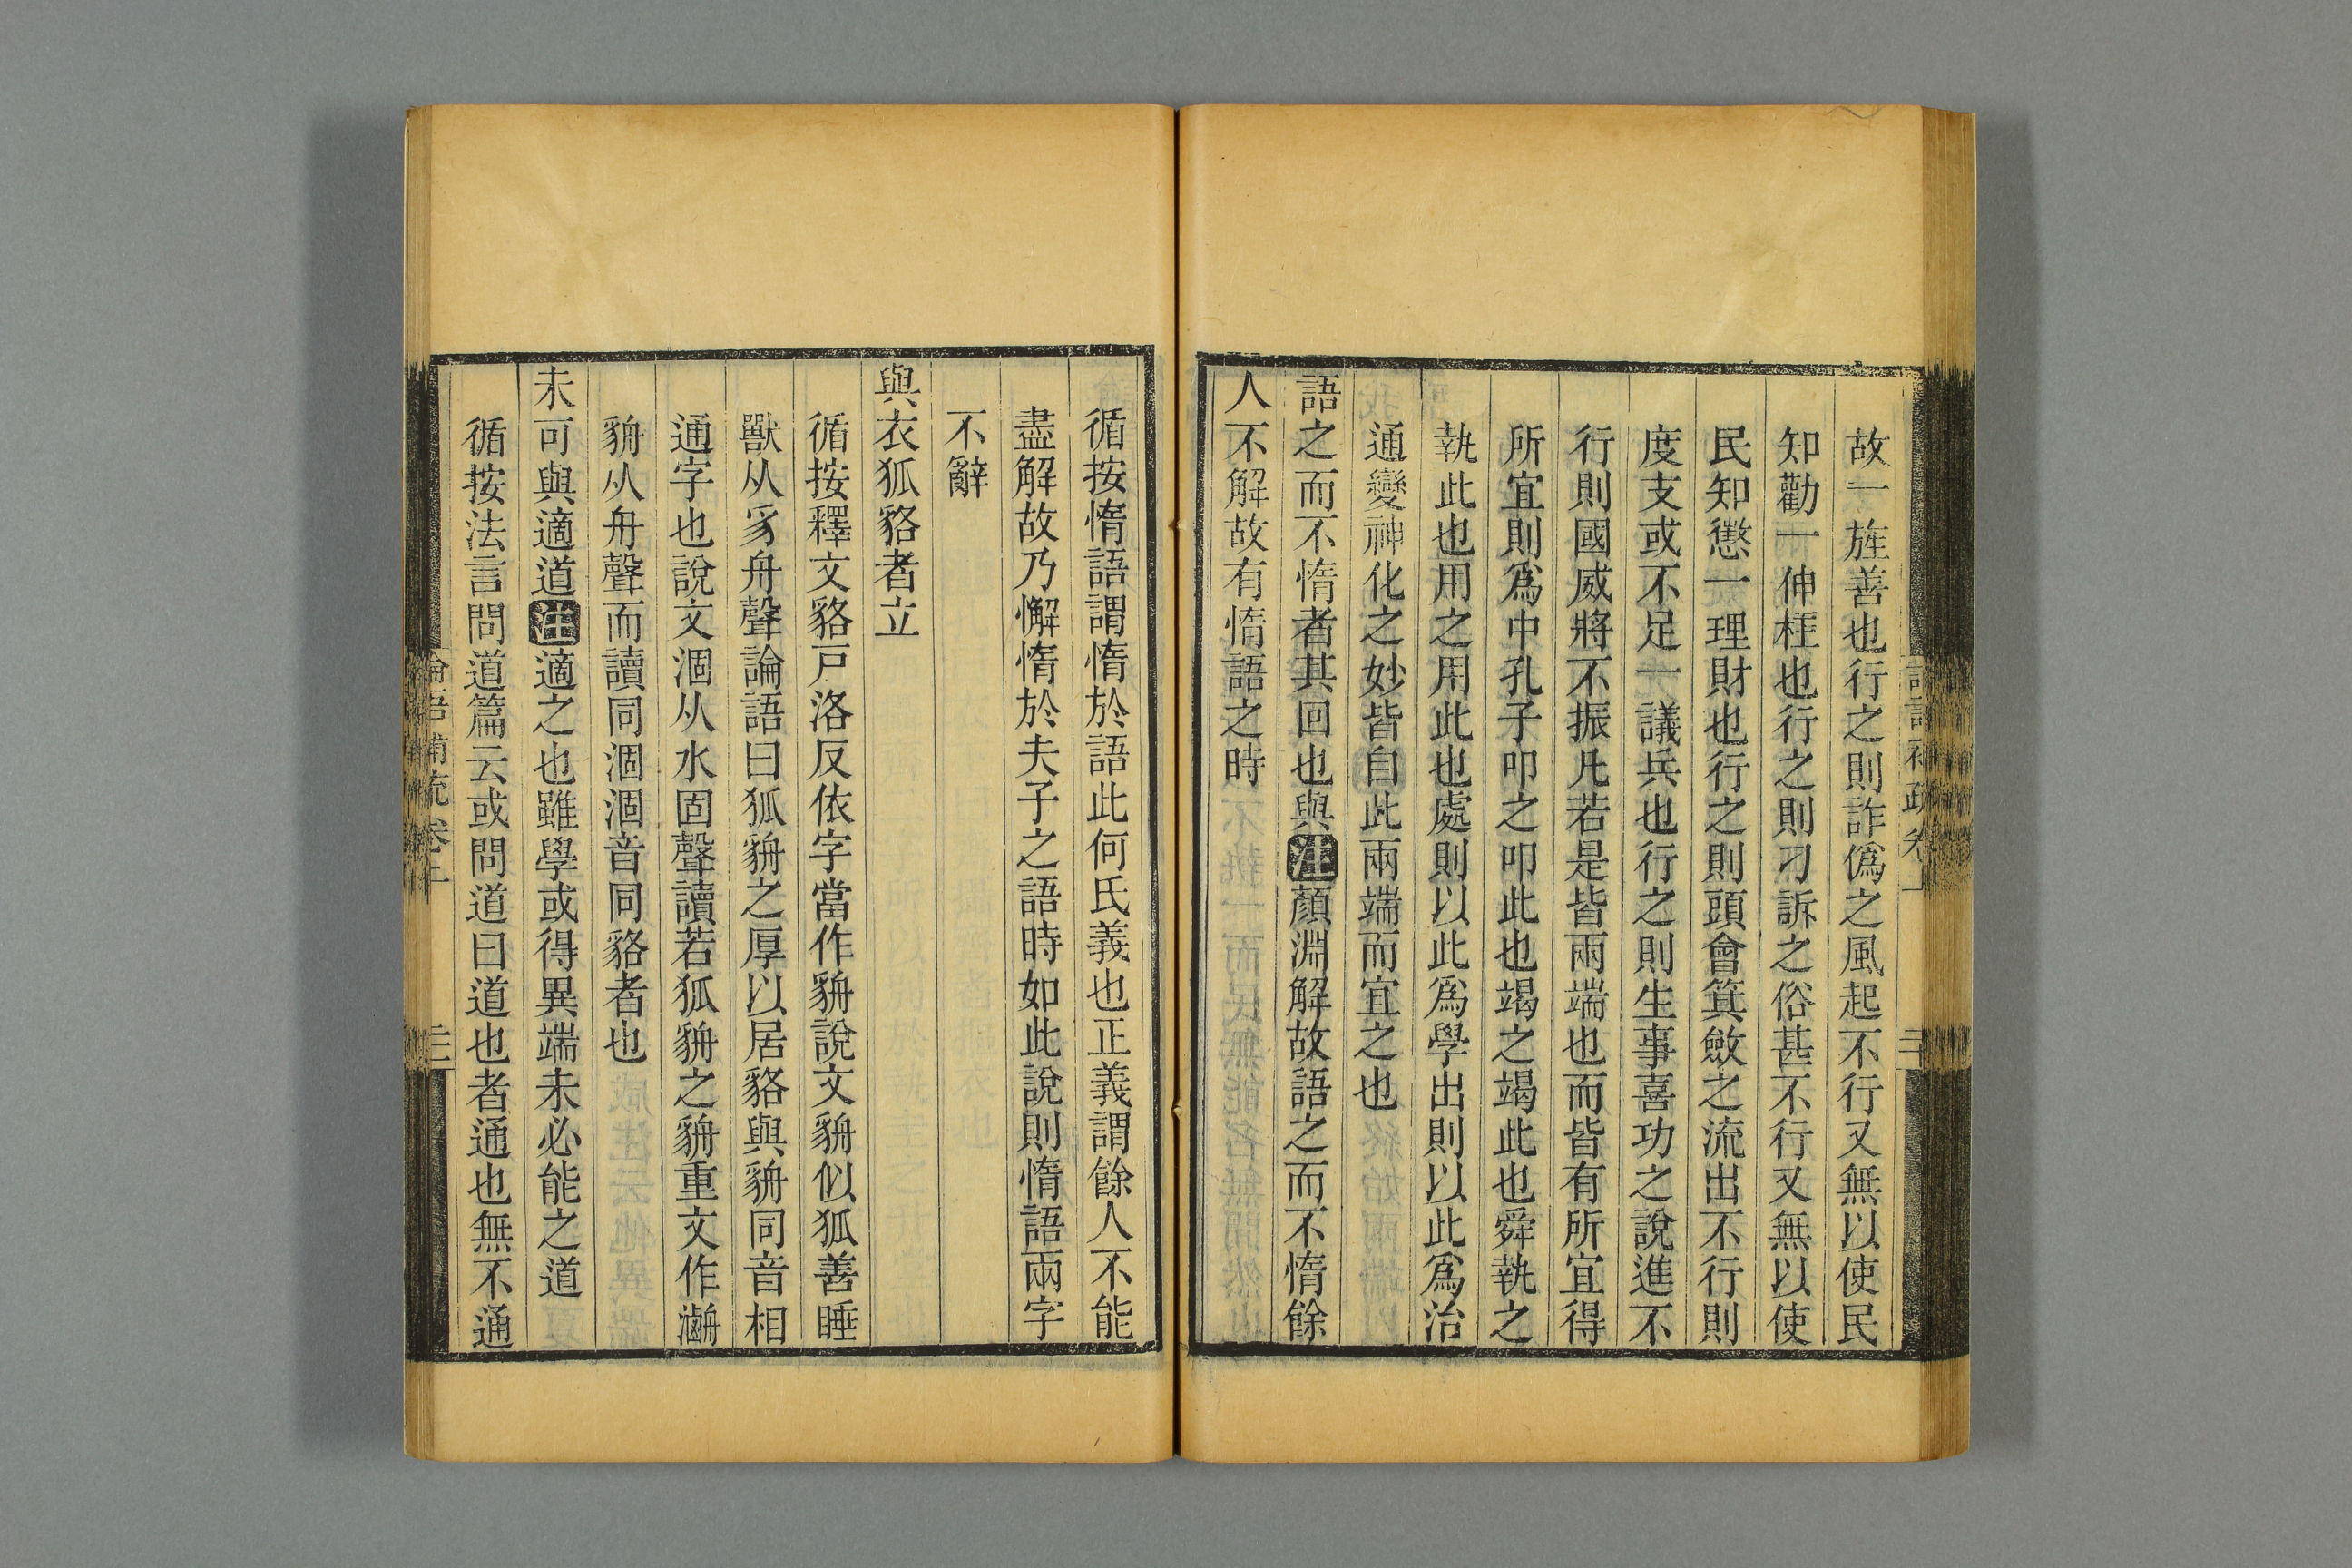 故一旌善也行之則詐僞之風起不行又無以使民
知勸一伸枉也行之則刁訴之俗甚不行又無以使
民知懲一理財也行之則頭會箕斂之流出不行則
度支或不足一議兵也行之則生事喜功之說進不
行則國威將不振凡若是皆兩端也而皆有所宜得
所宜則爲中孔子叩之叩此也竭之竭此也舜執之
執此也用之用此也處則以此爲學出則以此爲治
通變神化之妙皆自此兩端而宜之也
語之而不惰者其回也與注顏淵解故語之而不惰餘
人不解故有惰語之時
循按惰語謂惰於語此何氏義也正義謂餘人不能
盡解故乃懈惰於夫子之語時如此說則惰語兩字
不辭
與衣狐貉者立
循按釋文貉戸洛反依字當作貈說文貈似狐善睡
獸从豸舟聲論語曰狐貈之厚以居貉與貈同音相
通字也說文涸从水固聲讀若狐貈之貈重文作𤅙
貈从舟聲而讀同涸涸音同貉者也
未可與適道注適之也雖學或得異端未必能之道
循按法言問道篇云或問道曰道也者通也無不通
論語補疏卷上